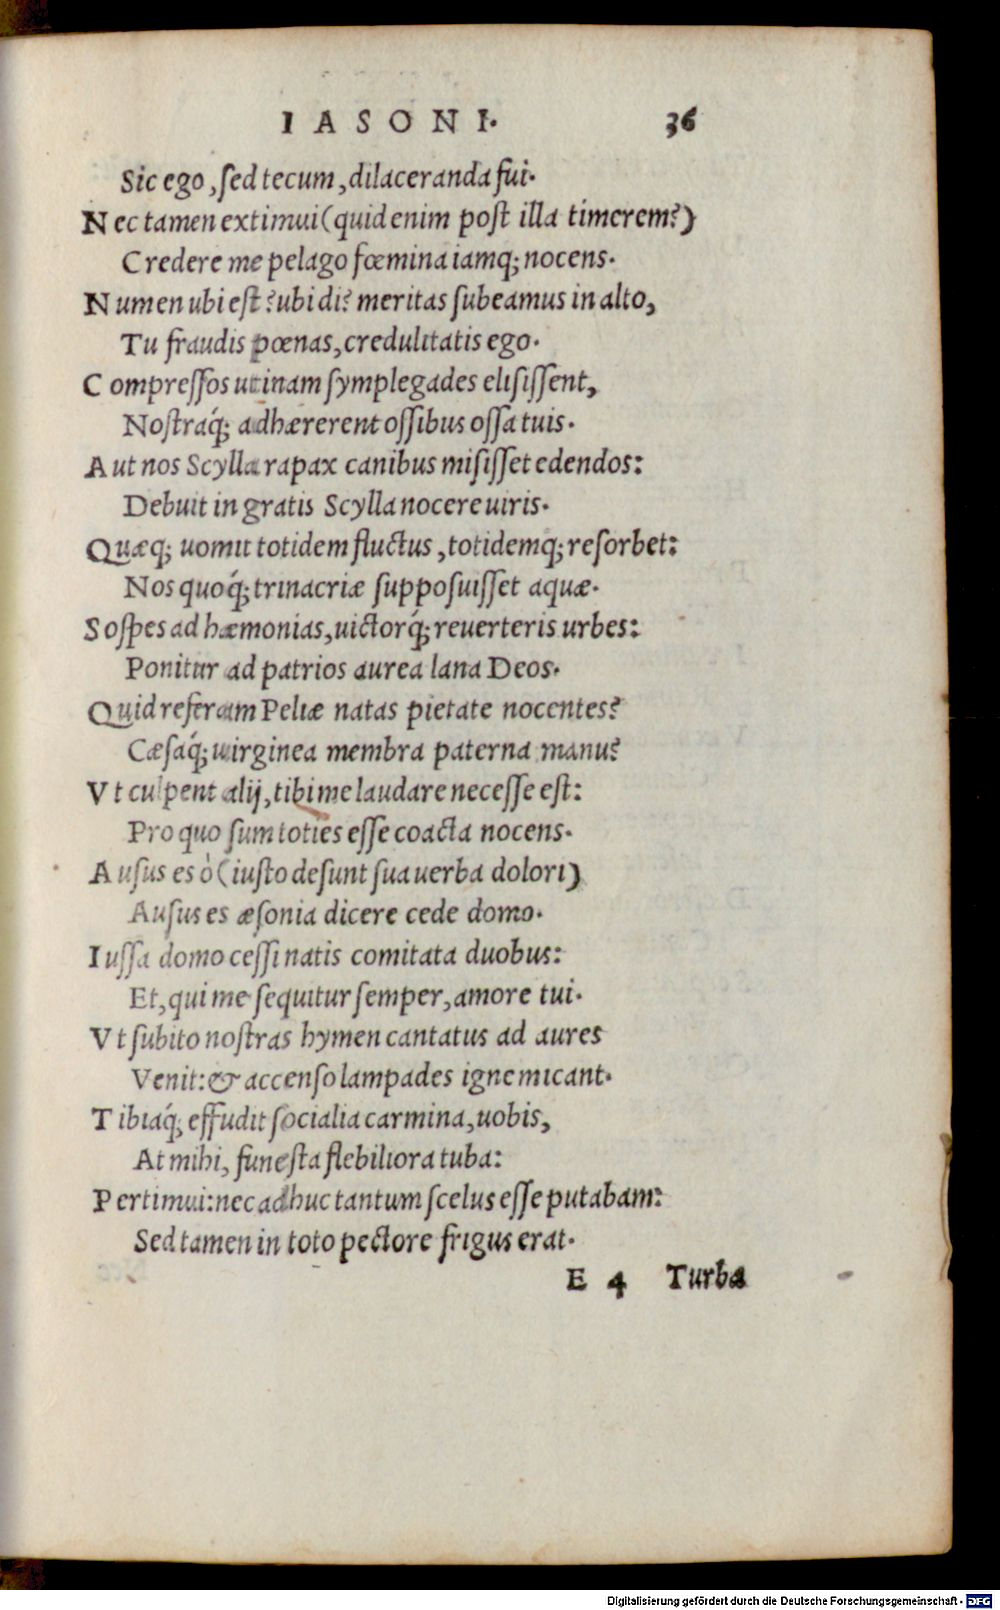 IASONI. 36
Sic ego, sed tecum, dilaceranda fui.
Nec tamen extimui (quid enim post illa timerem?)
Credere me pelago fœmina iamq; nocens.
Numen ubi est? ubi di? meritas subeamus in alto,
Tu fraudis pœnas, credulitatis ego.
Compressos utinam symplegades elisissent,
Nostraq́; adhærerent ossibus ossa tuis.
Aut nos Scylla rapax canibus misisset edendos:
Debuit in gratis Scylla nocere uiris.
Quæq; uomit totidem fluctus, totidemq; resorbet:
Nos quoq́; trinacriæ supposuisset aquæ.
Sospes ad hæmonias, uictorq́; reuerteris urbes:
Ponitur ad patrios aurea lana Deos.
Quid referam Peliæ natas pietate nocentes?
Cæsaq́; uirginea membra paterna manu?
Vt culpent alij, tibi me laudare necesse est:
Pro quo sum toties esse coacta nocens.
Ausus es ò (iusto desunt sua uerba dolori)
Ausus es æsonia dicere cede domo.
Iussa domo cessi natis comitata duobus:
Et, qui me sequitur semper, amore tui.
Vt subito nostras hymen cantatus ad aures
Venit: & accenso lampades igne micant.
Tibiaq́; effudit socialia carmina, uobis,
At mihi, funesta flebiliora tuba:
Pertimui: nec adhuc tantum scelus esse putabam:
Sed tamen in toto pectore frigus erat.
E 4 Turba
Digitalisierung gefördert durch die Deutsche Forschungsgemeinschaft - DFG